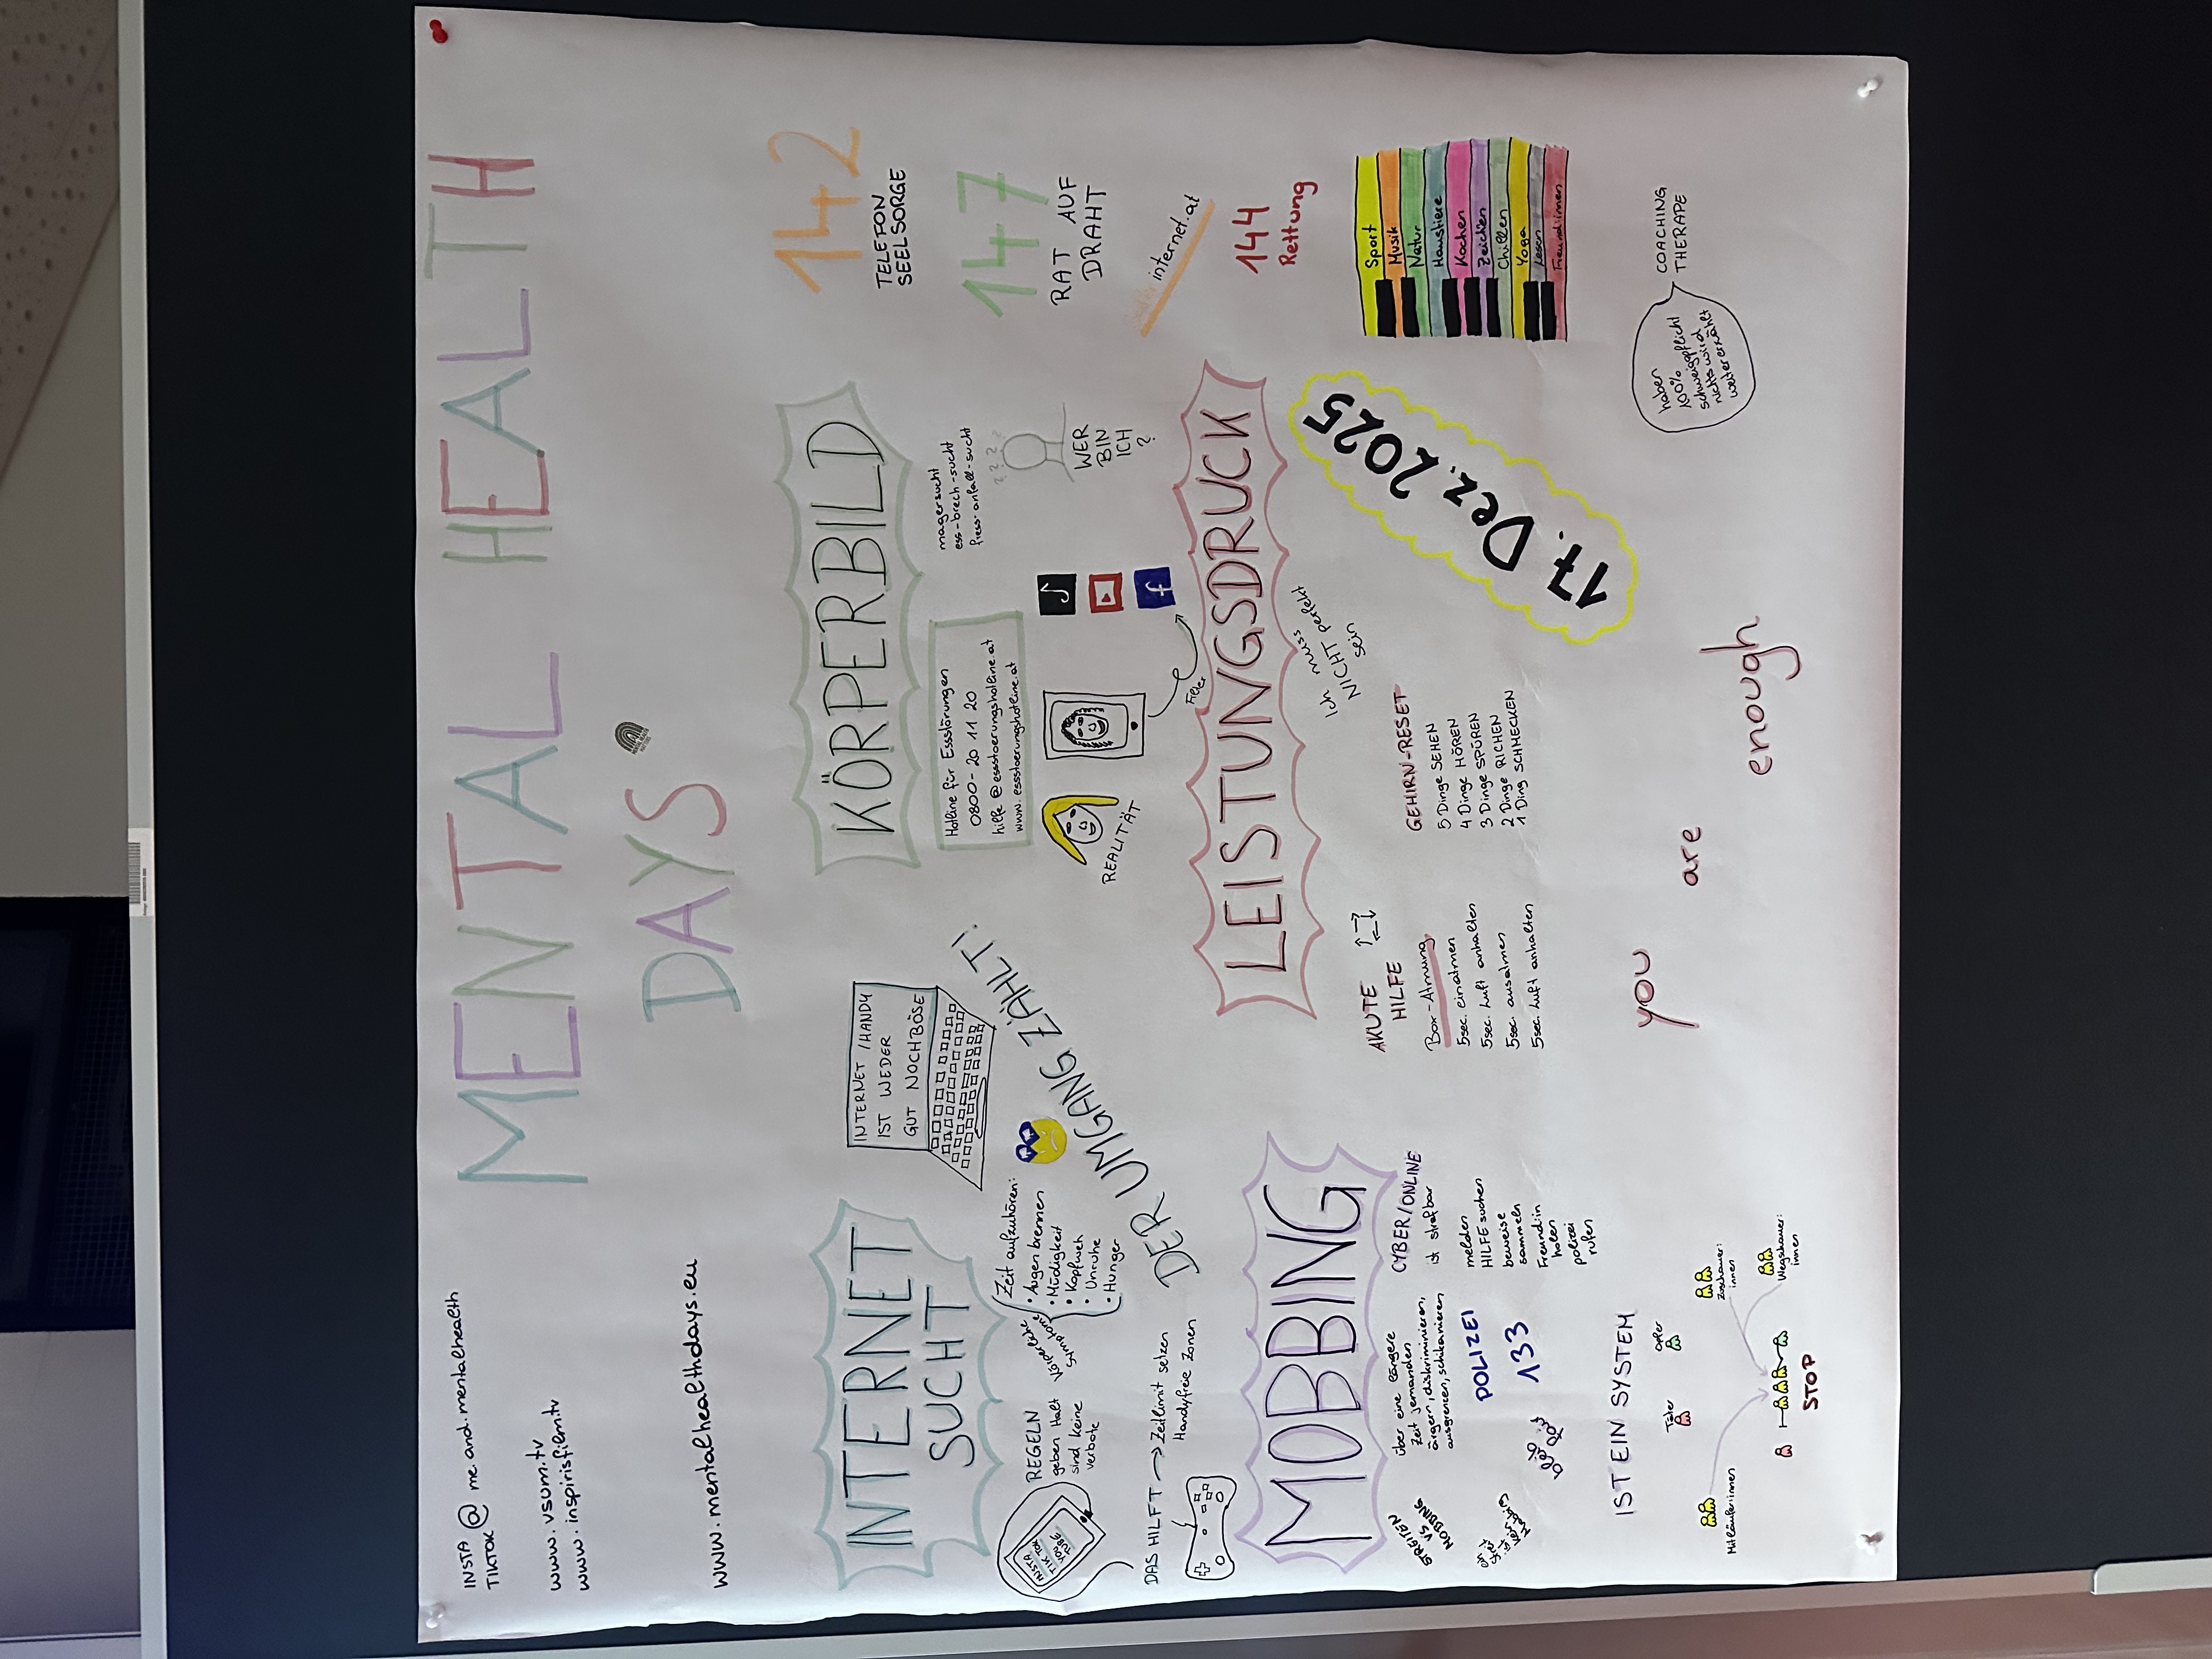 MENTAL HEALTH
DAYS
INSTA @ me.and.mentalhealth
TIKTOK
www.vsum.tv
www.inspirisfilm.tv
www.mentalhealthdays.eu
INTERNET
SUCHT
INTERNET /HANDY
IST WEDER
GUT NOCH BÖSE
DER UMGANG ZÄHLT!
REGELN
geben Halt
sind keine
verbote
INSTA
TIKTOK
YOU
TUBE
körperliche
Symptome
Zeit aufzuhören:
• Augen brennen
• Müdigkeit
• Kopfweh
• Unruhe
• Hunger
DAS HILFT → Zeitlimit setzen
Handyfreie Zonen
KÖRPERBILD
Hotline für Essstörungen
0800-20 11 20
hilfe@essstoerungshotline.at
www.essstoerungshotline.at
magersucht
ess-brech-sucht
fress-anfall-sucht
? ? ?
WER
BIN
ICH
?
REALITÄT
Filter
142
TELEFON
SEELSORGE
147
RAT AUF
DRAHT
internet.at
144
Rettung
MOBBING
STREITEN
VS
MOBBING
über eine längere
Zeit jemanden
ärgern, diskriminieren,
ausgrenzen, schikanieren
POLIZEI
133
CYBER/ONLINE
ist strafbar
melden
HILFE suchen
beweise
sammeln
Freund:in
holen
polizei
rufen
IST EIN SYSTEM
Täter
opfer
Mitläufer:innen
Zuschauer:
innen
Wegschauer:
innen
STOP
LEISTUNGSDRUCK
Ich muss
NICHT perfekt
sein
AKUTE
HILFE
Box-Atmung
5sec. einatmen
5sec. Luft anhalten
5sec. ausatmen
5sec. Luft anhalten
GEHIRN-RESET
5 Dinge SEHEN
4 Dinge HÖREN
3 Dinge SPÜREN
2 Dinge RICHEN
1 Ding SCHMECKEN
17. Dez. 2025
Sport
Musik
Natur
Haustiere
Kochen
Zeichen
Chillen
Yoga
Lesen
Freund:innen
COACHING
THERAPE
haben
100%
schweigepflicht
nichts wird
weitererzählt
you are enough